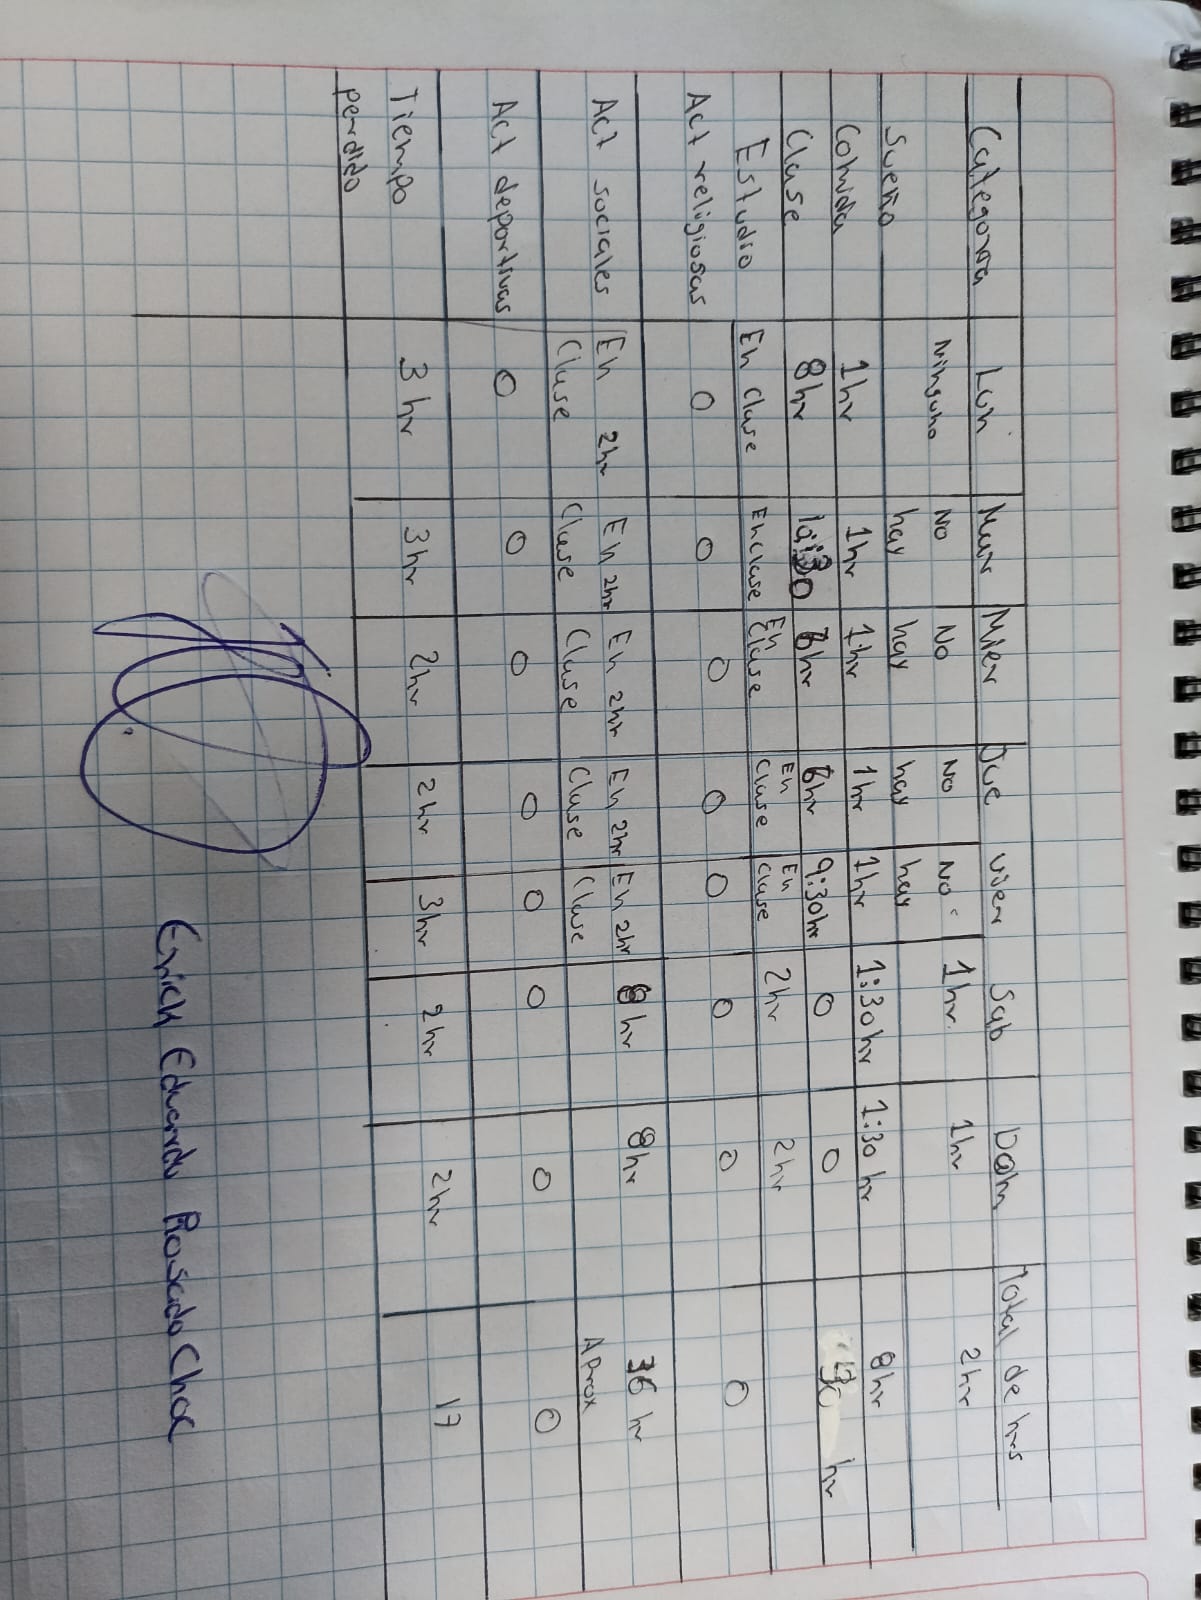 Categoria Lun Mar Mier Jue Vier Sab Dom Total de hrs
Sueño Ninguno No hay No hay No hay No hay 1hr. 1hr 2hr
Comida 1hr 1hr 1hr 1hr 1hr 1:30 hr 1:30 hr 8hr
Clase 8hr 10:30 6hr 6hr 9:30hr 0 0 hr
Estudio En Clase En Clase En Clase En Clase En Clase 2hr 2hr
Act religiosas 0 0 0 0 0 0 0 0
Act sociales En 2hr Clase En 2hr Clase En 2hr Clase En 2hr Clase En 2hr Clase 8 hr 8hr 36 hr Aprox
Act deportivas 0 0 0 0 0 0 0 0
Tiempo perdido 3 hr 3hr 2hr 2hr 3hr 2hr 2hr 17
Erick Eduardo Rosado Choc